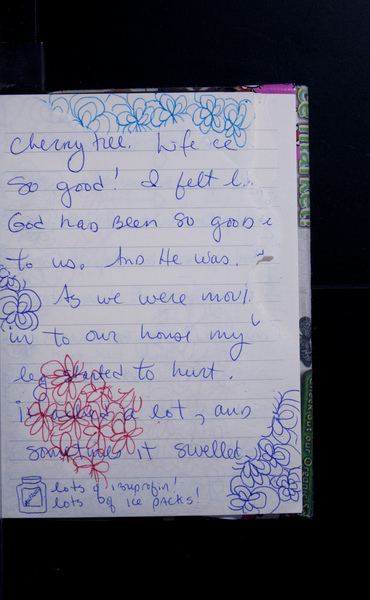 Cherry tree. Life
So good! I felt
God has Been so good
to us. And He was.
As we were movi
in to our house my
leg started to hurt.
a lot, and
sometimes it swelled
lots of isuprofin!
lots of ice packs!